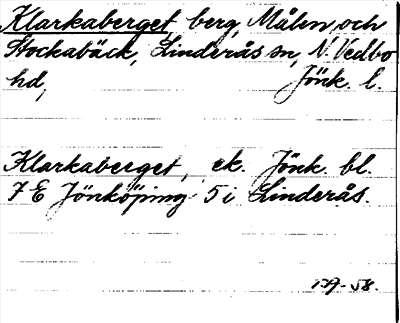 Klarkaberget, berg, Målen, och
Stockabäck, Linderås sn, N. Vedbo
hd, Jönk. l.
Klarkaberget, ek. Jönk. bl.
7 E Jönköping 5 i Linderås.
58.